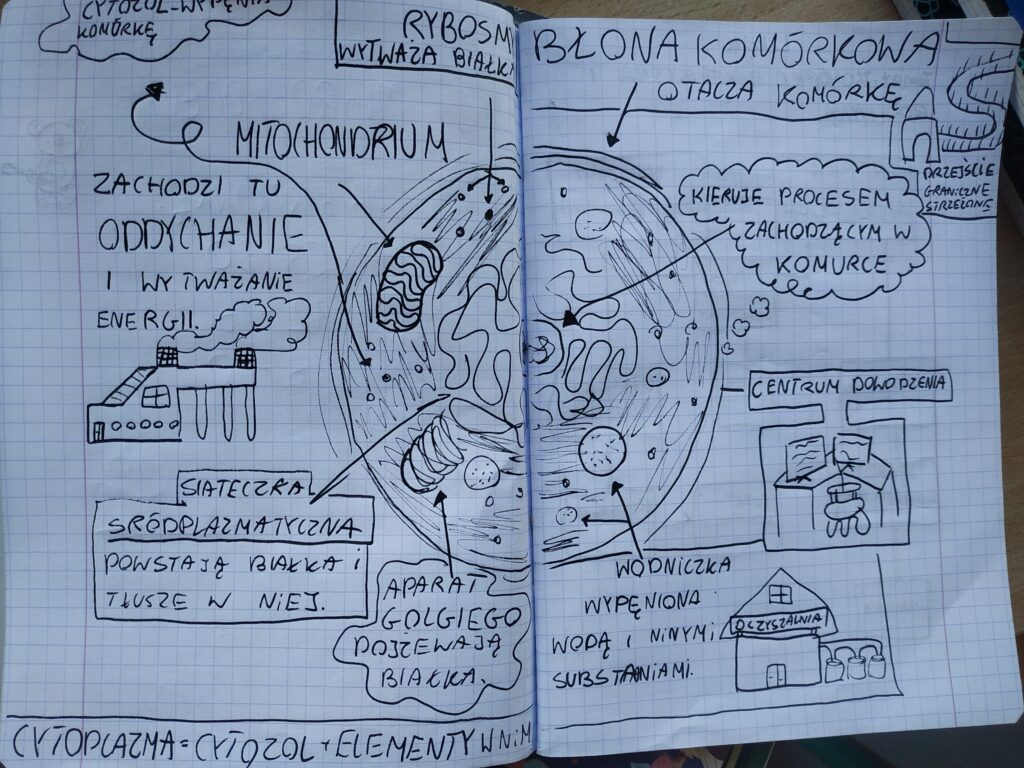 CYTOZOL-WYPEŁNIA
KOMÓRKĘ
RYBOSM
WYTWAŻA BIAŁKA
MITOCHONDRIUM
ZACHODZI TU
ODDYCHANIE
I WYTWAŻANIE
ENERGII.
SIATECZKA
ŚRÓDPLAZMATYCZNA
POWSTAJĄ BIAŁKA I
TŁUSZE W NIEJ.
APARAT
GOLGIEGO
DOJŻEWAJĄ
BIAŁKA.
CYTOPLAZMA = CYTOZOL + ELEMENTY W NIM
BŁONA KOMÓRKOWA
OTACZA KOMÓRKĘ
PRZEJŚCIE
GRANICZNE
STRZEŻONE
KIERUJE PROCESEM
ZACHODZĄCYM W
KOMURCE
CENTRUM DOWODZENIA
WODNICZKA
WYPĘNIONA
WODĄ I NINYMI
SUBSTANIAMI.
OCZYSZALNIA